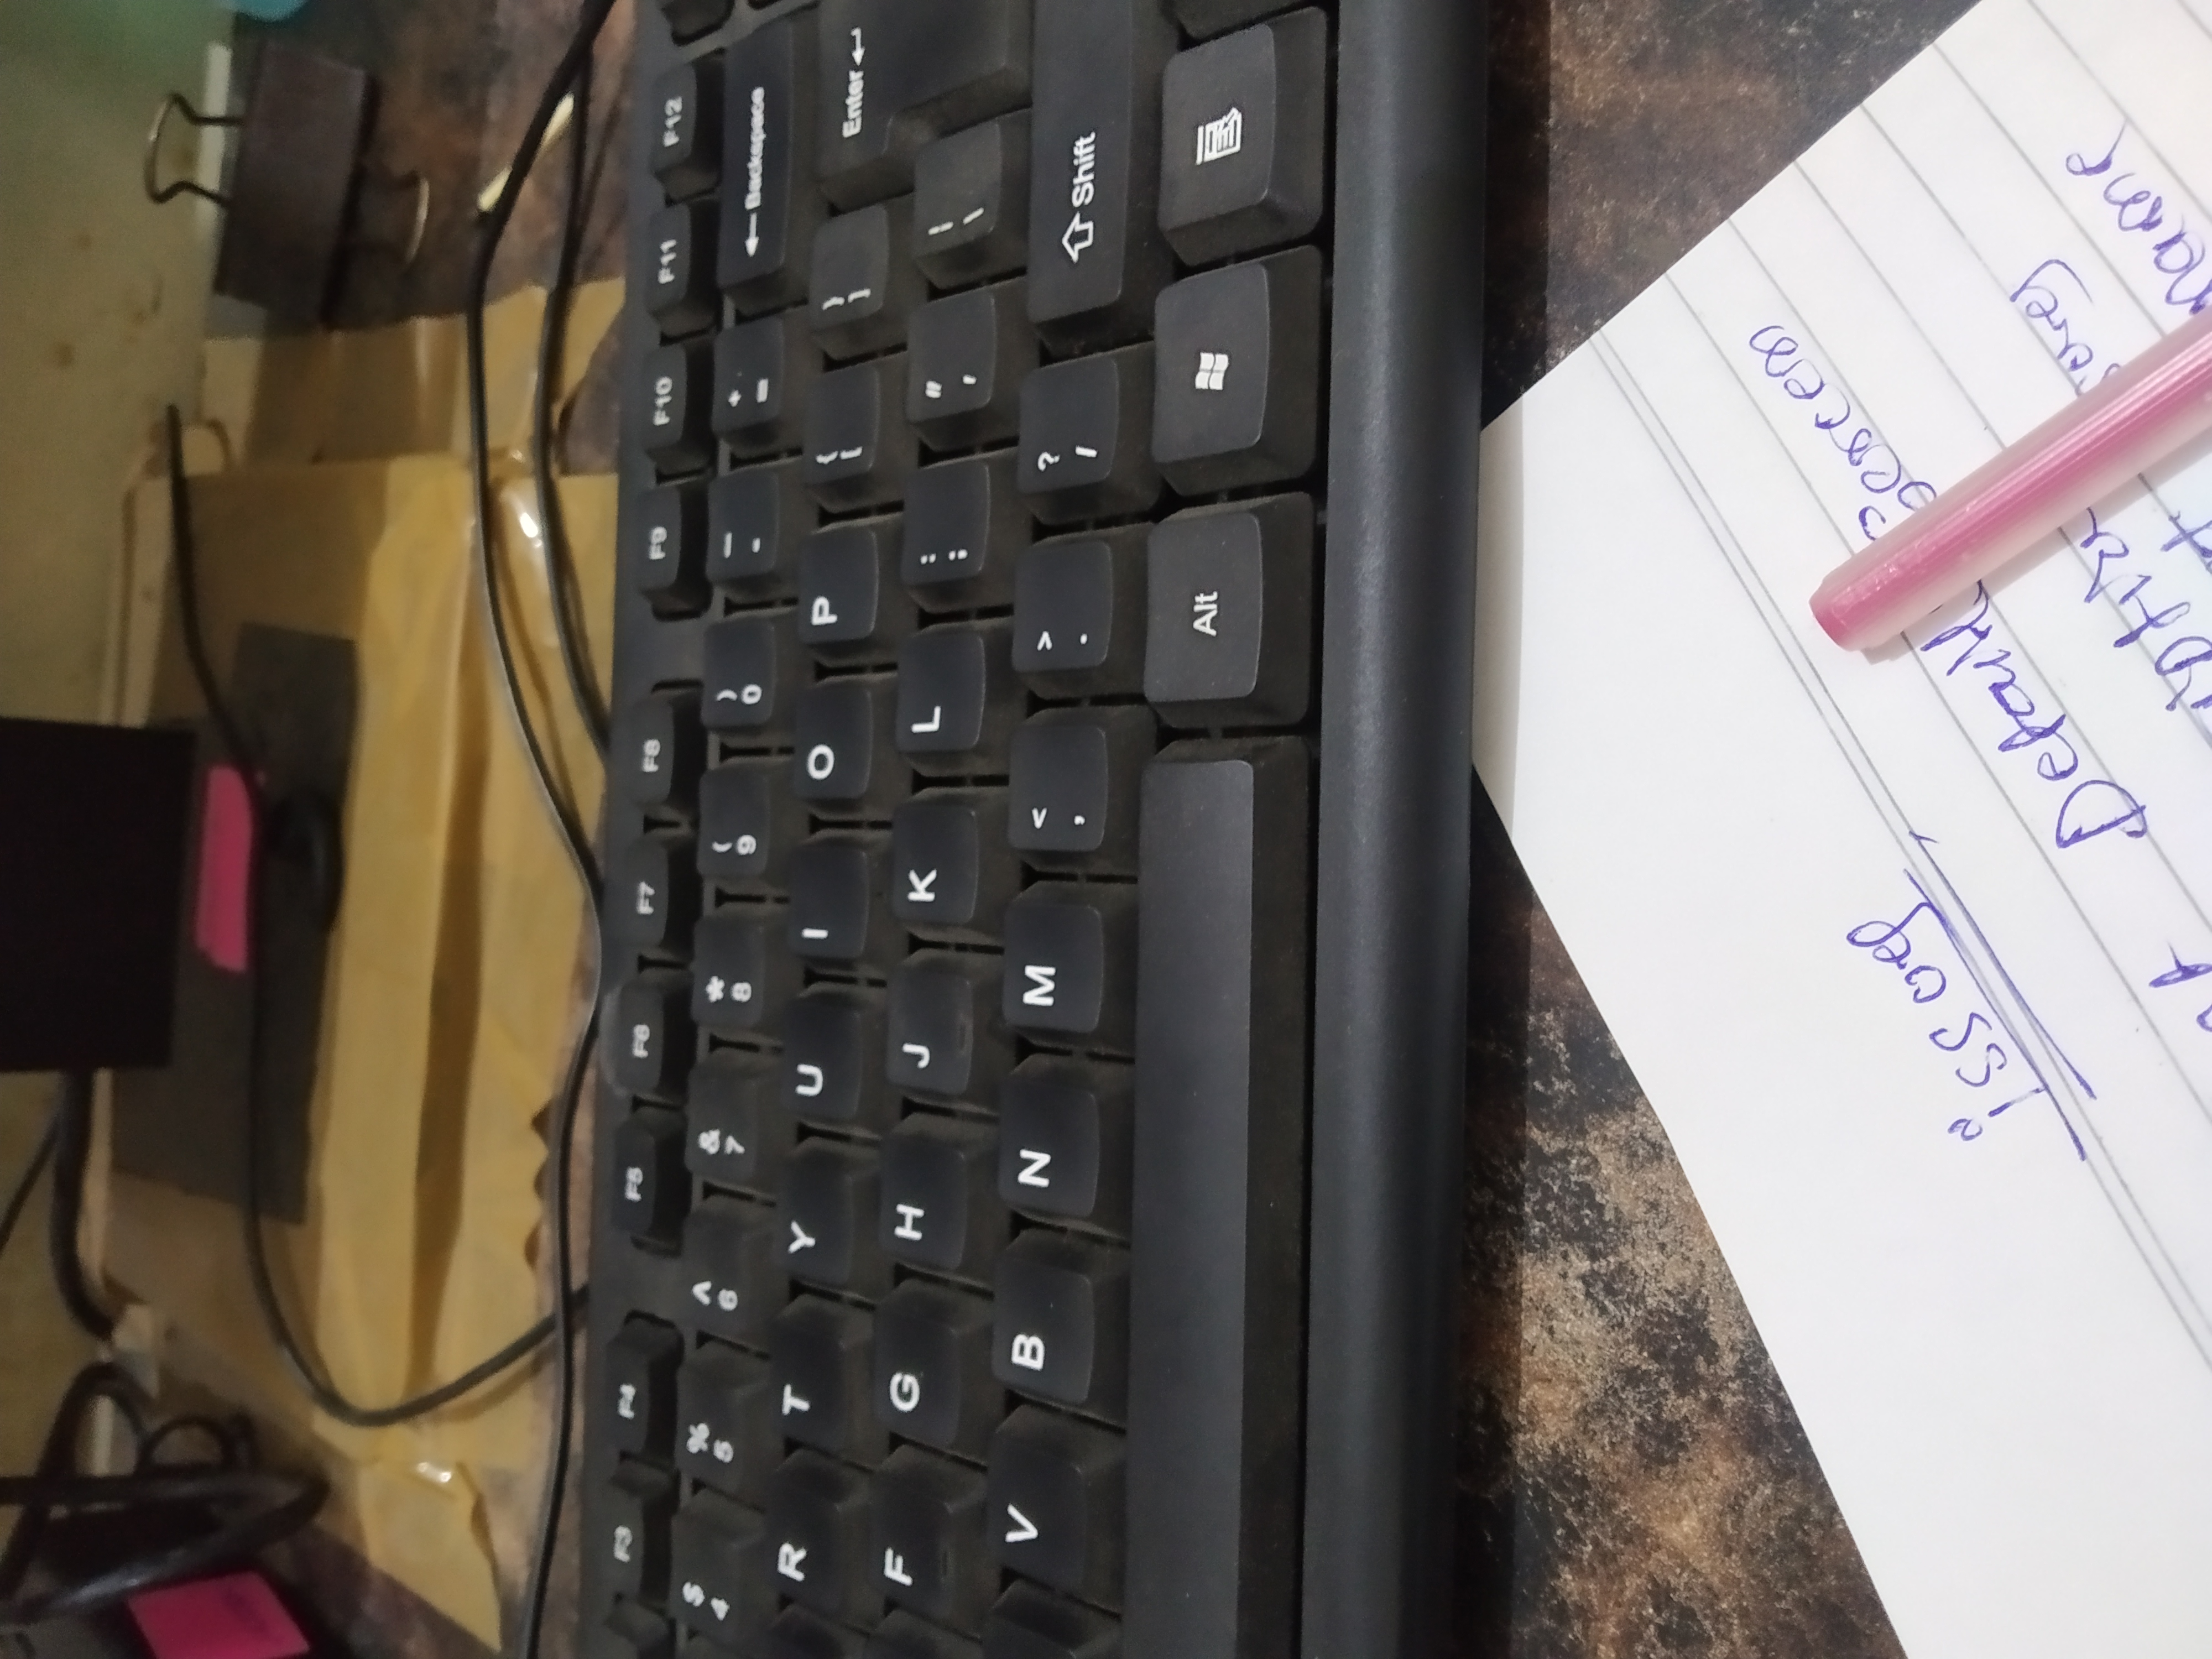 F3 F4 F5 F6 F7 F8 F9 F10 F11 F12
$ 4 % 5 ^ 6 & 7 * 8 ( 9 ) 0 _ - + = ← Backspace
R T Y U I O P { [ } ] Enter ↵
F G H J K L : ; " ' | \
V B N M < , > . ? / ⇧ Shift
Alt
issue
Default Screen
name